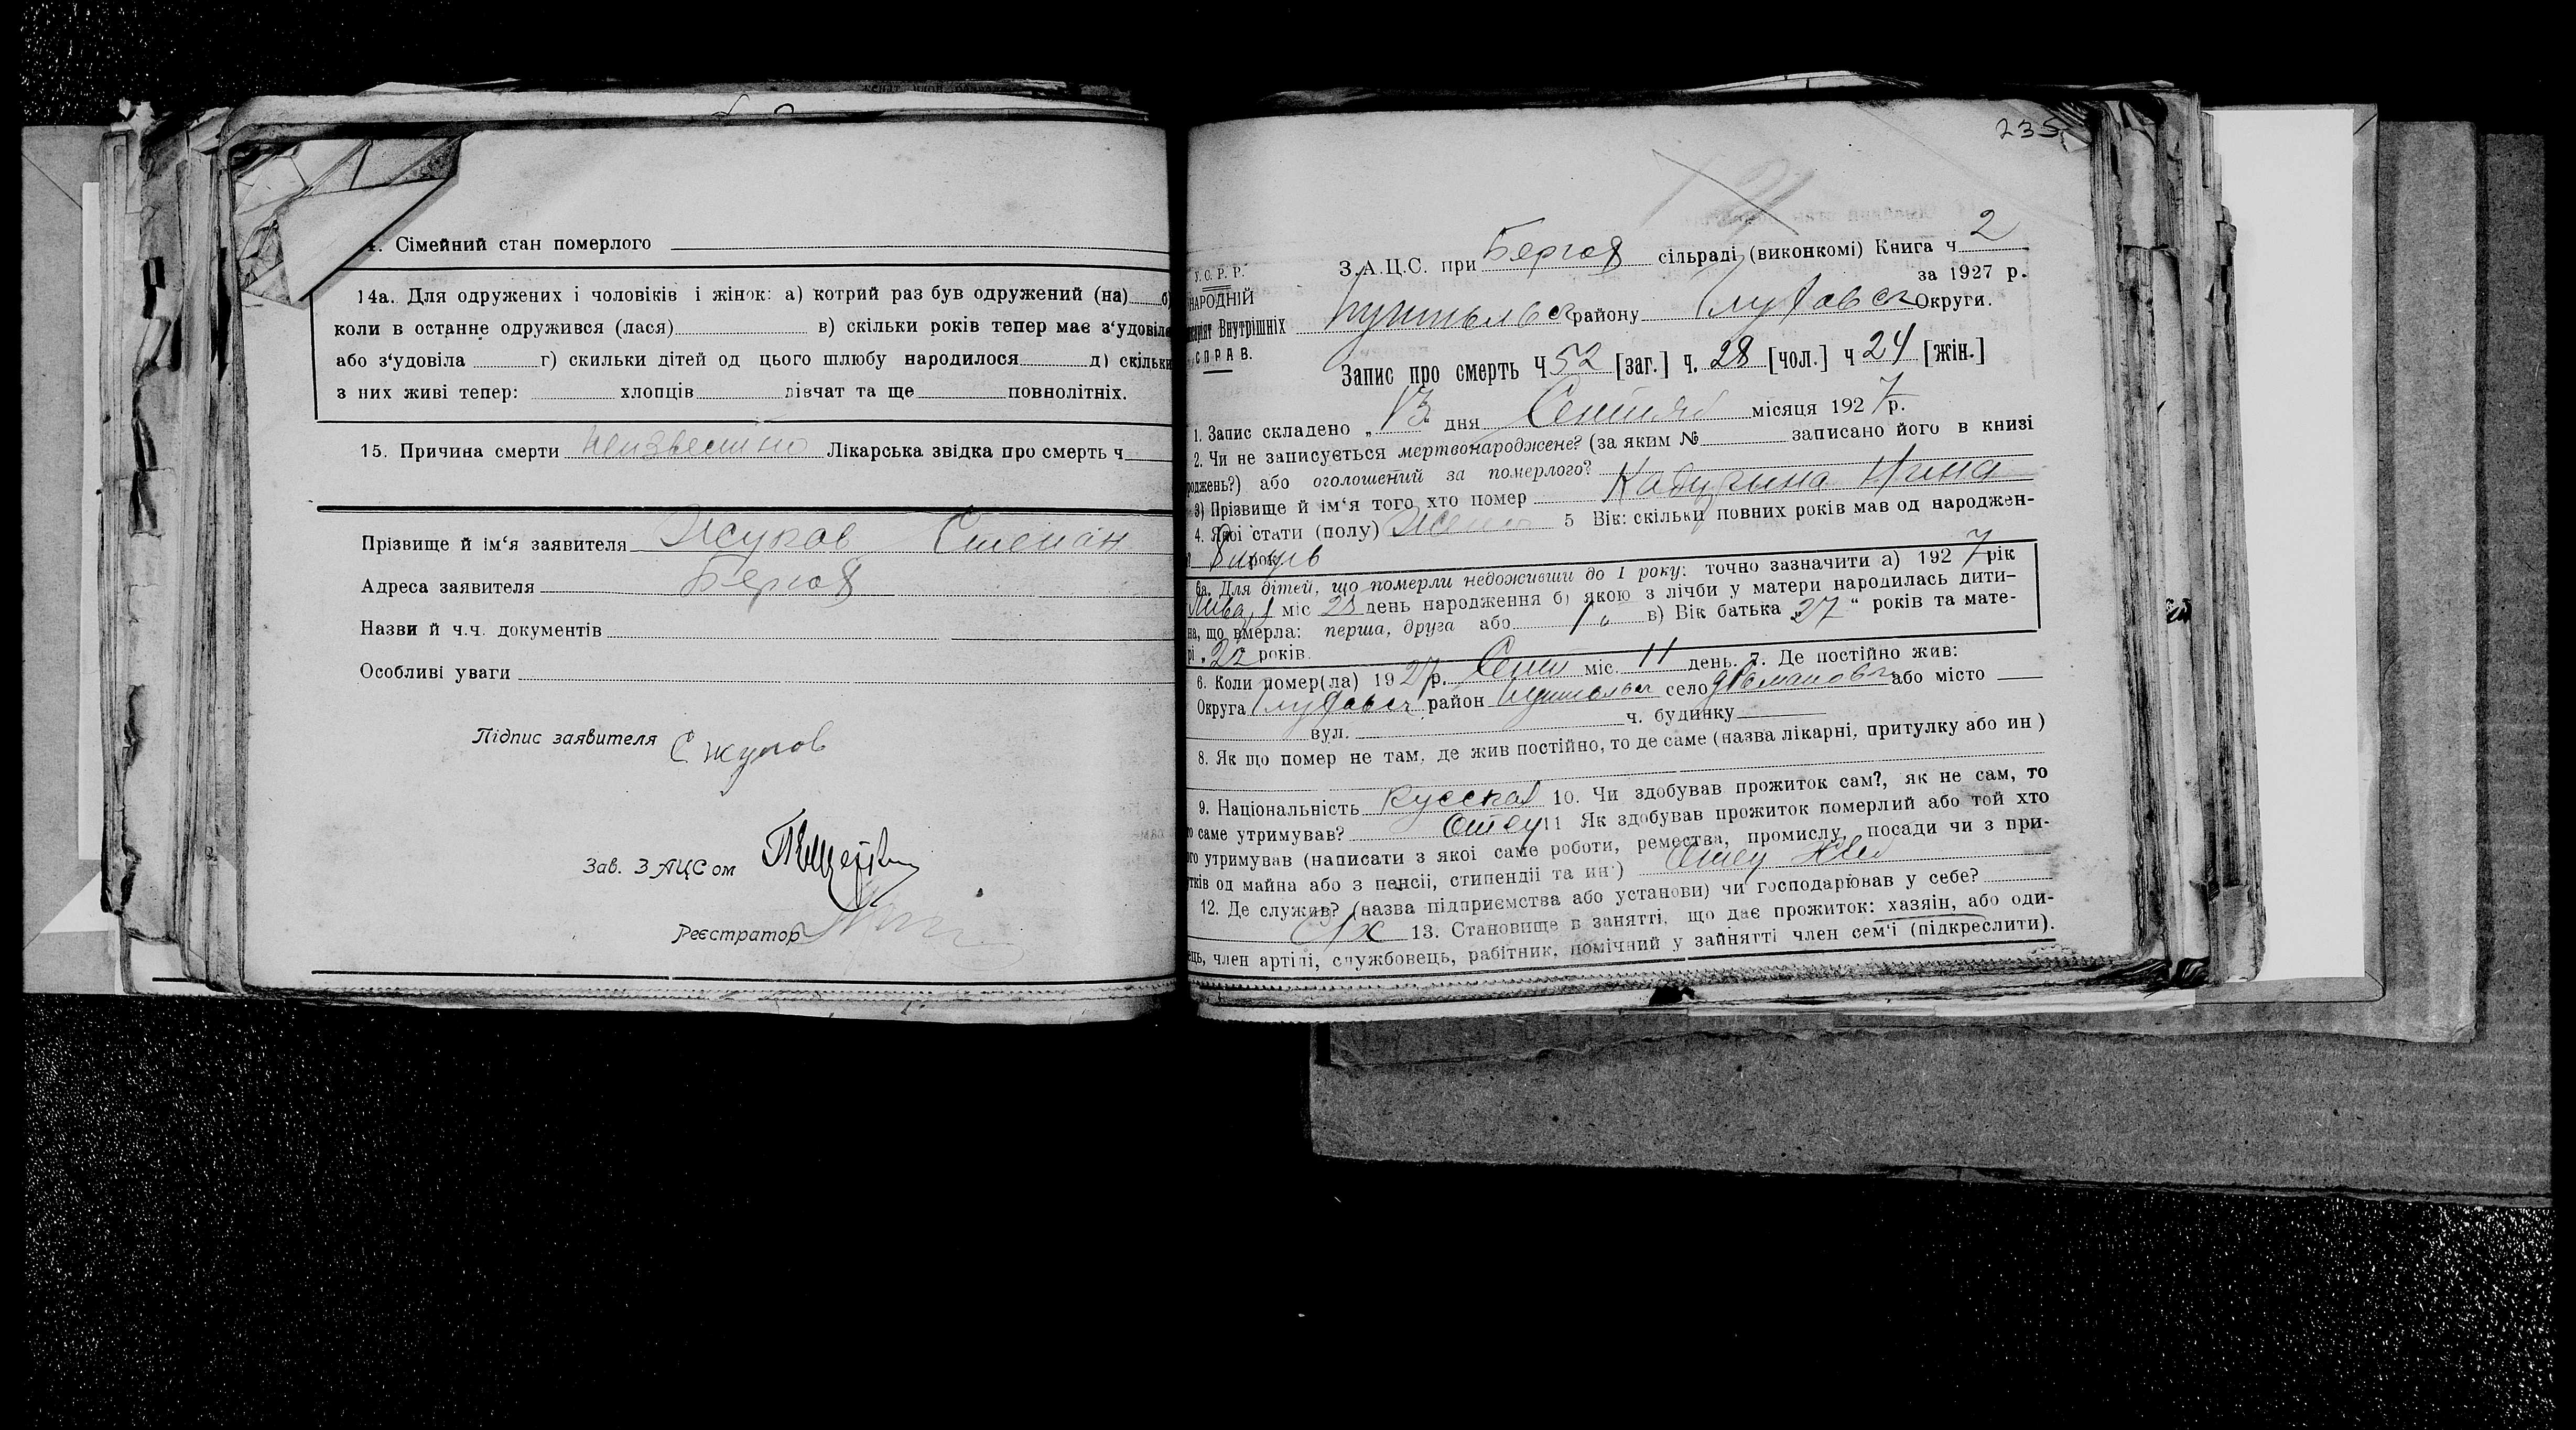 4. Сімейний стан померлого
14а. Для одружених і чоловіків і жінок: а) котрий раз був одружений (на) б)
коли в останнє одружився (лася) в) скільки років тепер має з'удовіле
або з'удовіла г) скильки дітей од цього шлюбу народилося д) скільки
з них живі тепер: хлопців дівчат та ще повнолітніх.
15. Причина смерти неизвестно Лікарська звідка про смерть ч
Прізвище й ім'я заявителя Жуков Степан
Адреса заявителя
Назви й ч.ч. документів
Особливі уваги
Підпис заявителя С Жуков
Зав. ЗАЦСом
Реєстратор
235
З.А.Ц.С. при сільраді (виконкомі) Книга ч 2
за 1927 р.
У.С.Р.Р.
НАРОДНІЙ
Внутрішніх Путивльск району Глуховск Округи.
СПРАВ.
Запис про смерть Ч 52 [заг.] ч. 28 [чол.] ч 24 [жін.]
1. Запис складено „ 13 дня місяця 1927 р.
2. Чи не записується мертвонароджене? (за яким № записано його в книзі
роджень?) або оголошений за померлого?
3) Прізвище й ім'я того хто помер Нина
4. Якої стати (полу) Жен 5 Вік: скільки повних років мав од народжен-
рок
6а. Для дітей, що померли недоживши до 1 року: точно зазначити а) 1927 рік
міс 28 день народження б) якою з лічби у матери народилась дити-
на, що вмерла: перша, друга або 1 „ в) Вік батька 27 “ років та мате-
рі „ 22 років.
6. Коли помер(ла) 1927 р. Сент міс. 11 день. 7. Де постійно жив:
Округа Глуховск район Путивльск село або місто
вул. ч. будинку
8. Як що помер не там, де жив постійно, то де саме (назва лікарні, притулку або ин)
9. Національність Русская 10. Чи здобував прожиток сам?, як не сам, то
то саме утримував? Отец 11 Як здобував прожиток померлий або той хто
ого утримував (написати з якої саме роботи, ремества, промислу, посади чи з при-
тків од майна або з пенсії, стипендії та ин.) Отец
12. Де служив? (назва підприємства або установи) чи господарював у себе?
с/х 13. Становище в занятті, що дає прожиток: хазяін, або оди-
ець, член артілі, службовець, рабітник, помічний у зайнятті член сем'і (підкреслити).